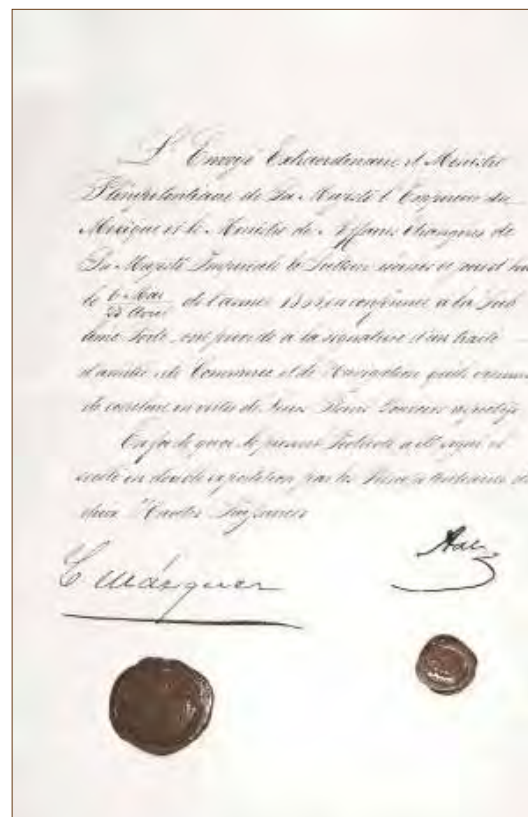 L'Envoyé Extraordinaire et Ministre
Plénipotentiaire de Sa Majesté l'Empereur du
Mexique et le Ministre des Affaires Etrangères de
Sa Majesté Impériale le Sultan réunis ce jourd'hui
le 6 Mai / 25 Avril de l'année à la Sub
lime Porte, ont procédé à la signature d'un traité
d'amitié, de Commerce et de Navigation qu'ils viennent
de conclure en vertu de leurs Pleins Pouvoirs respectifs
En foi de quoi le présent Protocole a été signé et
scellé en double expédition par les Plénipotentiaires des
deux Hautes Puissances